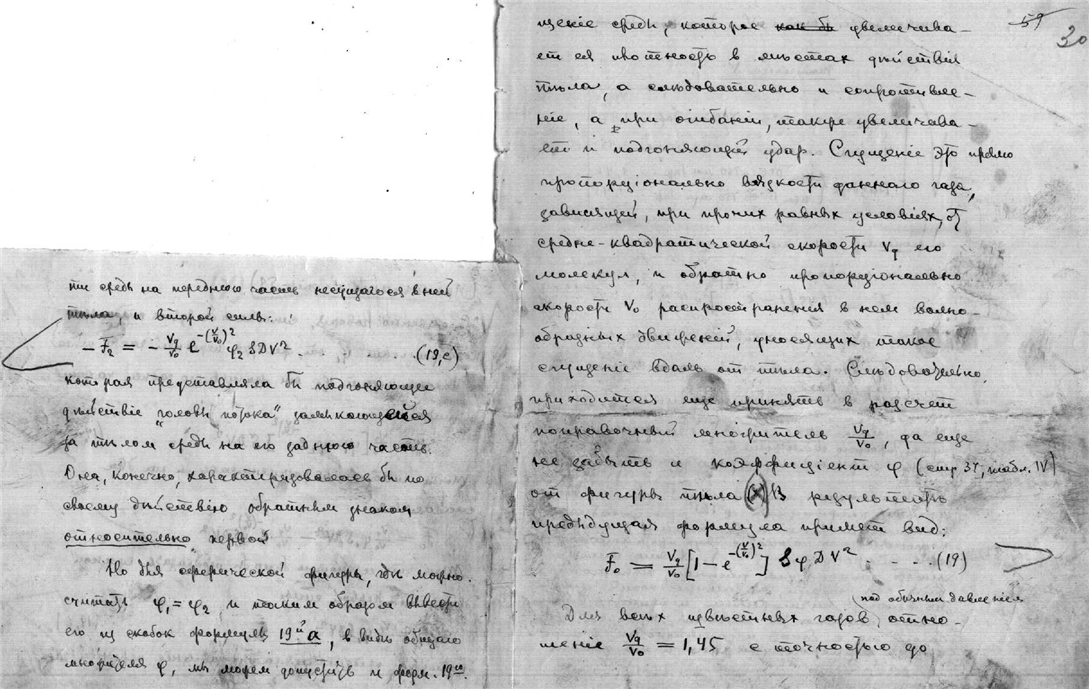 ти среды на переднюю часть несущагося в ней
тѣла, и второй силы:
− F₂ = − Vq/V₀ e^−(V/V₀)² φ₂ S D V² . . (19,c)
которая представляла бы подгоняющее
дѣйствіе "головы потока" замыкающейся
за тѣлом среды на его заднюю часть.
Она, конечно, характеризовалась бы по
своему дѣйствію обратным знаком
относительно первой
Но для сферической фигуры, гдѣ можно
считать φ₁ = φ₂ и таким образом вывести
его из скобок формулы 19й a, в видѣ общаго
множителя φ, мы можем допустить и форм. 19ю.
59
30
щеніе среды, которое как бы увеличива-
ет ея плотность в мѣстах дѣйствія
тѣла, а слѣдовательно и сопротивле-
ніе, а при огибаніи, также увеличива-
ет и подгоняющій удар. Сгущеніе это прямо
пропорціонально вязкости даннаго газа,
зависящей, при прочих равных условіях, от
средне-квадратической скорости Vq его
молекул, и обратно пропорціонально
скорости V₀ распространенія в нем волно-
образных движеній, уносящих такое
сгущеніе вдаль от тѣла. Слѣдовательно,
приходится еще принять в разсчет
поправочный множитель Vq/V₀, да еще
не забыть и коэффиціент φ (стр 37, табл. IV)
от фигуры тѣла (×) В результатѣ
предыдущая формула примет вид:
F₀ = Vq/V₀ [1 − e^−(V/V₀)²] S φ D V² . . . (19)
под обычным давленіем
Для всѣх извѣстных газов, отно-
шеніе Vq/V₀ = 1,45 с точностью до